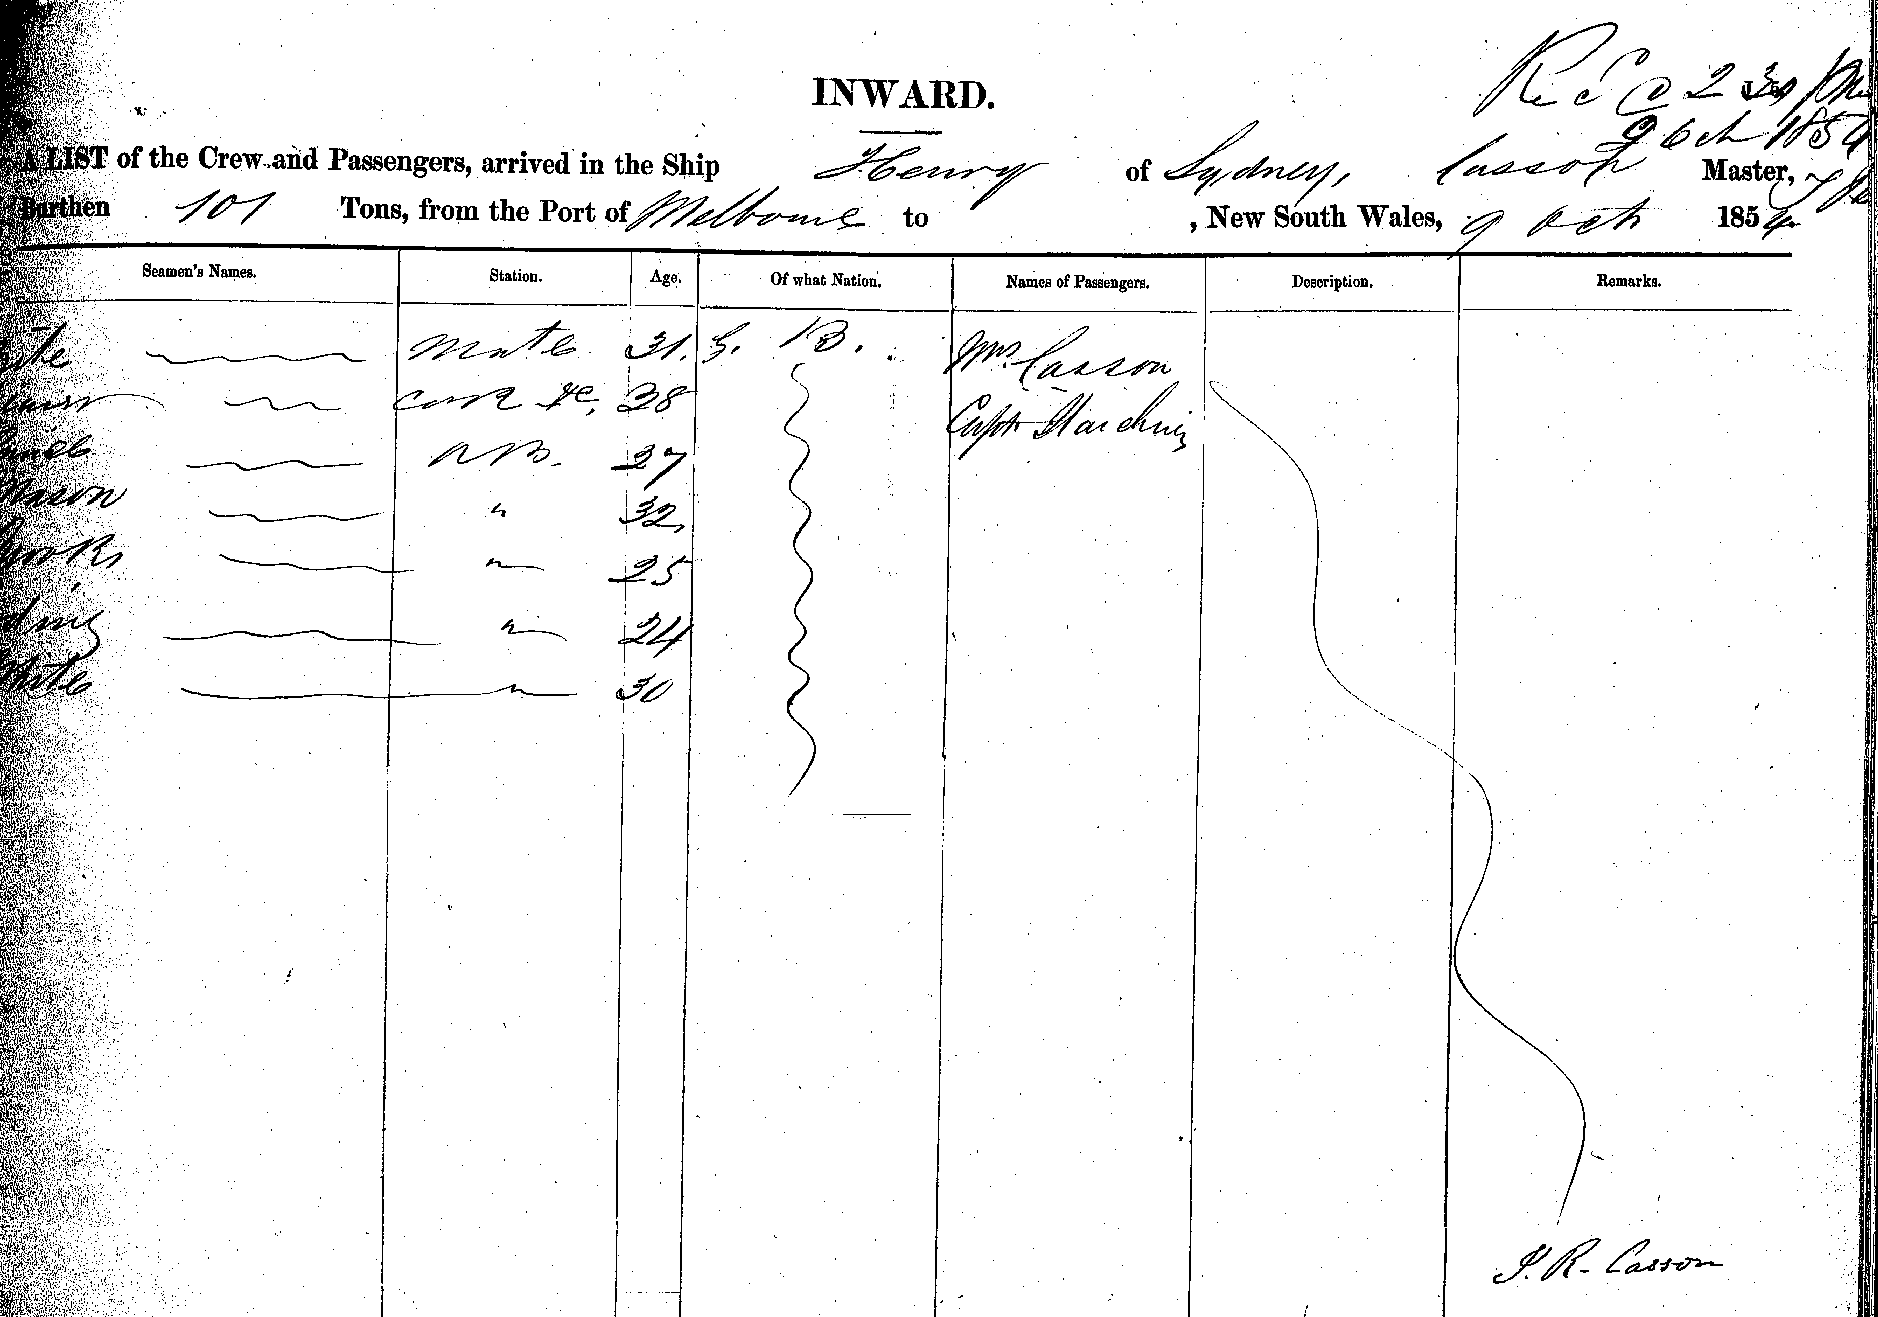 INWARD.
Rec @ 2
9 Oct 1854
A LIST of the Crew and Passengers, arrived in the Ship Henry of Sydney, Casson Master,
Burthen 101 Tons, from the Port of Melbourne to , New South Wales, 9 Oct 1854
Seamen's Names. Station. Age. Of what Nation. Names of Passengers. Description. Remarks.
Mate 31. G. B. Mrs. Casson
Cook &c, 38
Capt
AB. 27
" 32
" 25
" 24
" 30
J. R. Casson